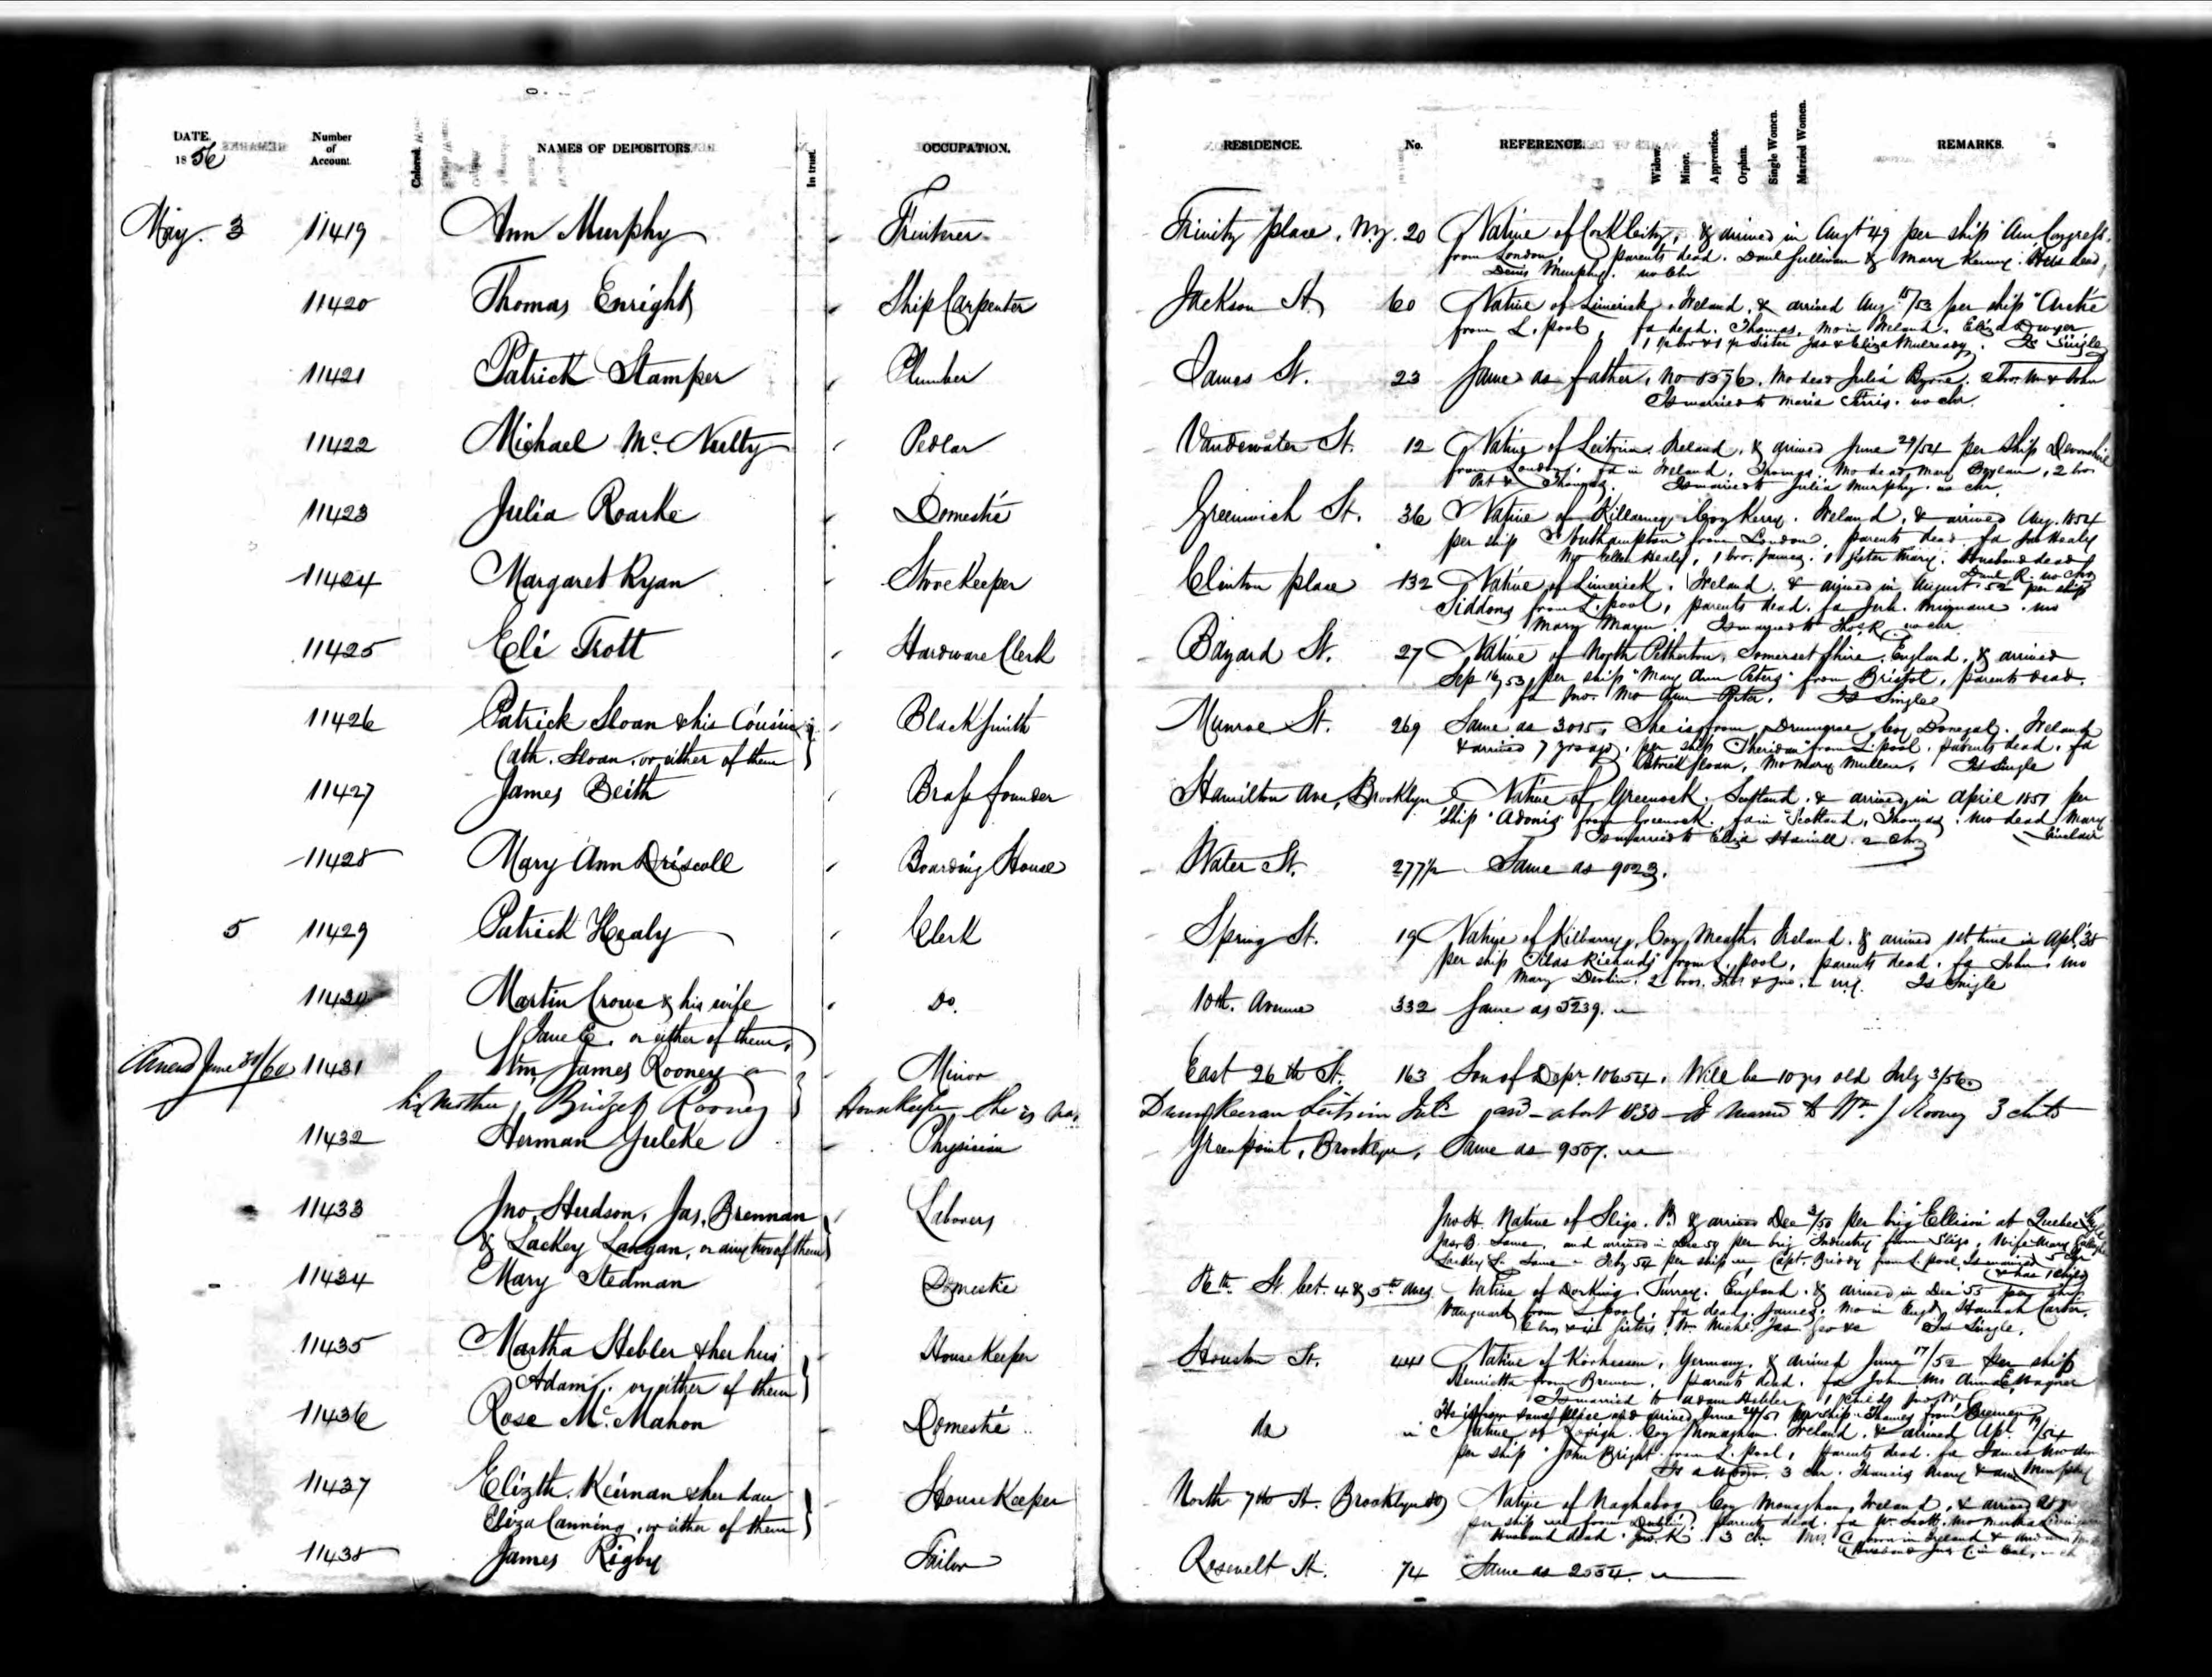 DATE. 1856 Number of Account. Colored. NAMES OF DEPOSITORS. In trust. OCCUPATION. RESIDENCE. No. REFERENCE. Widow. Minor. Apprentice. Orphan. Single Women. Married Women. REMARKS.
May. 3 11419 Ann Murphy Trinity place, N.Y. 20 Native of Cork City, & arrived in Augt 49 per ship Am. Congress,
from London, parents dead. Danl Sullivan & Mary Kenny. Hus dead,
Denis Murphy. no chr
11420 Thomas Enright Ship Carpenter Jackson St. 60 Native of Limerick, Ireland, & arrived Aug 15/53 per ship "Arctic
from L.pool, fa dead. Thomas, Mo in Ireland, Eliza Dwyer
1 sister Jas & Eliza Mulready. Is Single
11421 Patrick Stamper Plumber James St. 23 Same as father, No 8536. Mo dead Julia Byrne. 2 bro. Wm & John
Is married to Maria Ferris. no chr.
11422 Michael Mc. Nulty Pedlar Vandewater St. 12 Native of Leitrim. Ireland, & arrived June 29/54 per ship Devonshire
from London, fa in Ireland, Thomas, Mo dead Mary Boylan, 2 bro.
Pat & Thomas. Is married to Julia Murphy. no chr.
11423 Julia Roarke Domestic Greenwich St. 36 Native of Killarney Coy Kerry. Ireland, & arrived Aug. 1854
per ship Southampton from London, parents dead fa Jas Healy
Mo Ellen Healy, 1 bro. James. 1 sister Mary. Husband dead
Danl R. no chr
11424 Margaret Ryan Storekeeper Clinton place 132 Native of Limerick. Ireland. & arrived in August 52 per ship
Siddons from L.pool, parents dead. fa Jerh. mo
Mary Is married to Thos. R. no chr.
11425 Eli Trott Hardware Clerk Bayard St. 27 Native of North Petherton, Somersetshire. England, & arrived
Sep 16/53, per ship "Mary Ann Peters" from Bristol, parents dead.
fa Jno. Mo Ann Is Single
11426 Patrick Sloan & his Cousin Blacksmith Munroe St. 269 Same as 3015. She is from Coy Donegal. Ireland
Cath. Sloan. or either of them & arrived 7 yrs ago, per ship "Sheridan" from L.pool. parents dead. fa
Patrick Sloan, Mo Mary Mullen, Is Single
11427 James Beith Brass founder Hamilton Ave, Brooklyn Native of Greenock. Scotland. & arrived in April 1851 per
Ship "Adonis" from Greenock. fa in Scotland, Thomas. Mo dead Mary
Sinclair
Is married to Eliza 2 chr
11428 Mary Ann Driscoll Boarding House Water St. 277½ Same as 9023.
5 11429 Patrick Healy Clerk Spring St. 19 Native of Kilbarry, Coy Meath. Ireland. & arrived 1st time in Apl. 38
per ship "Silas Richards" from L.pool, parents dead. fa John. mo
Mary Devlin. 2 bros. Thos & Jno. Is Single
11430 Martin Crowe & his wife Do. 10th. Avenue 332 Same as 5239.
Jane E. or either of them.
June 60 11431 Wm. James Rooney Minor East 26th St. 163 Son of Depr. 10654. Will be 10 yrs old July 3/56.
his mother, Bridget Rooney Housekeeper She is Leitrim about 1830 Is married to Wm J Rooney 3 chds
11432 Herman Physician Greenpoint, Brooklyn. Same as 9507.
11433 Jno, Hudson, Jas, Brennan Laborers Jno H. Native of Sligo. & arrived Dec /50 per brig Ellison at Quebec
& Lackey Langan, or any two of them Jas. B. Same. and arrived in Dec 50 per brig "Industry" from Sligo, Wife Mary
Lackey L. Same July 54 per ship Capt. Briody from L.pool, Is married 5 chr
& has 1 child
11434 Mary Stedman Domestic 86th. St. bet. 4 & 5th aves. Native of Dorking. Surrey. England. & arrived in Dec 53 per ship
Vanguard from L pool. fa dead. James. Mo in Engd Hannah Carter.
6 bros & 4 sisters. Wm. Michl. Jas. Geo &c Is Single.
11435 Martha Hebler & her hus Housekeeper Houston St. 441 Native of Germany, & arrived June 17/52 per ship
Adam, or either of them Henrietta from Bremen, parents dead. fa John Mo Anna E. Wagner
Is married to Adam Hebler 1 child
He is from same place and arrived June 24/51 per ship Thames from Bremen
11436 Rose Mc. Mahon Domestic do Native of Coy Monaghan. Ireland. & arrived Apl. 19/54
per ship "John Bright" from L.pool, parents dead. fa James Mo Ann
Murphy
Is a Widow. 3 chr. Francis Mary & Ann
11437 Elizth. Keirnan & her dau Housekeeper North 7th St. Brooklyn 80 Native of Coy Monaghan, Ireland, & arrived
Eliza Canning, or either of them per ship from Dublin. parents dead. fa W. Scott. Mo Martha
Husband dead Jno. K. 3 chr. Mrs. C born in Ireland &
Husband Jas C. in Cal.
11438 James Rigby Tailor Rosevelt St. 74 Same as 2554.